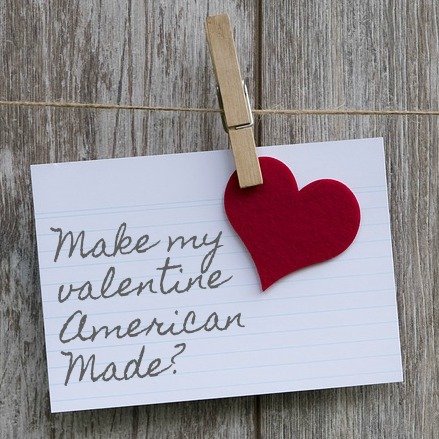 Make my
valentine
American
Made?